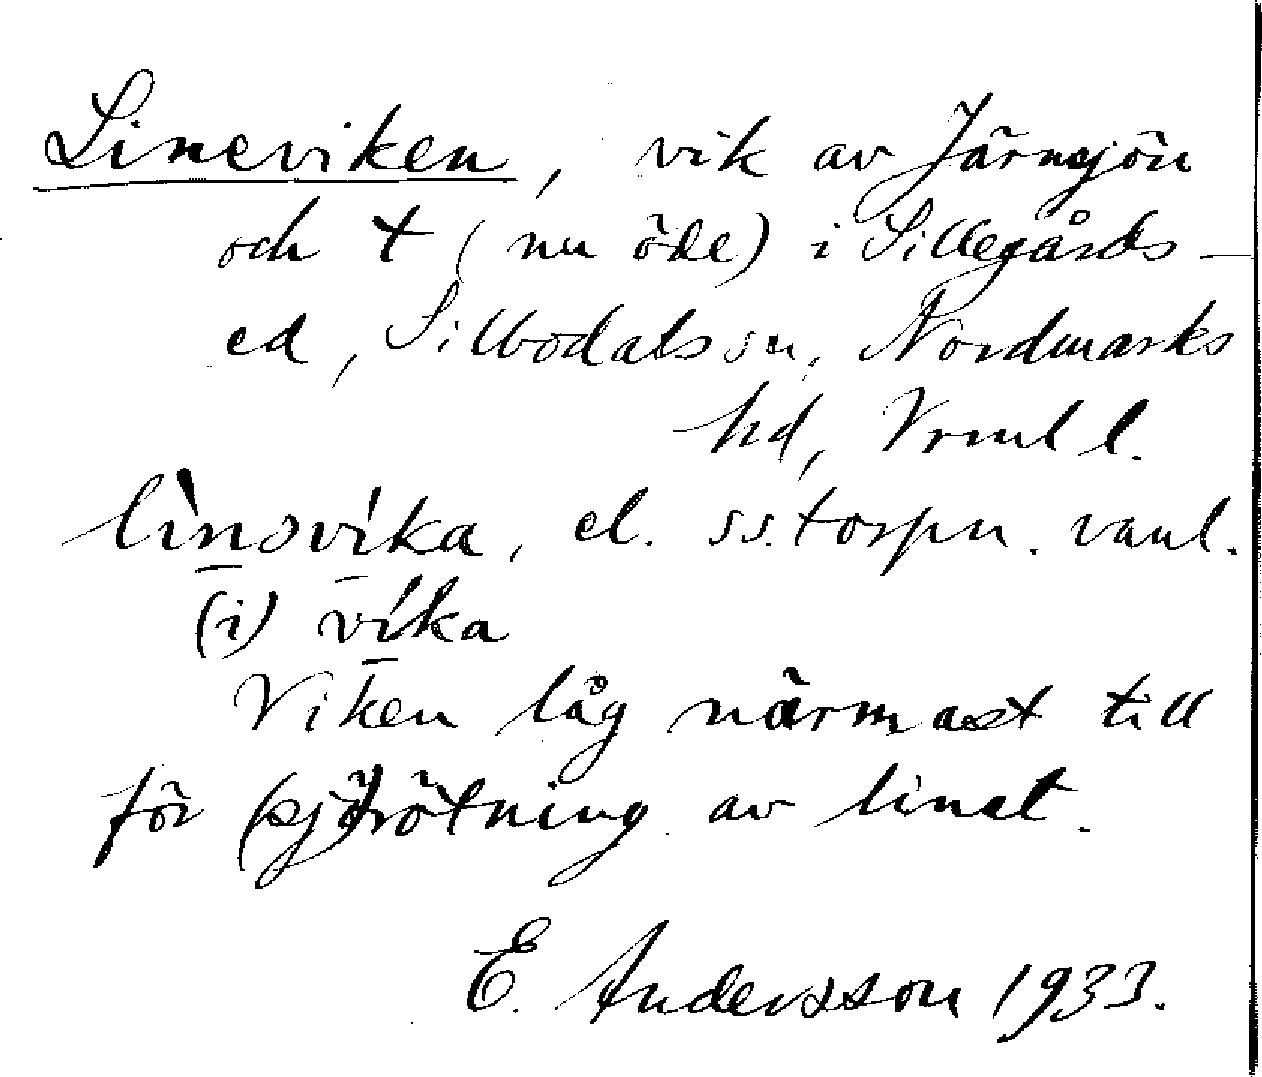 Lineviken, vik av Järnsjön
och t (nu öde) i Sillegårds-
ed, Silbodals sn, Nordmarks
hd, Vrml l.
lìnsvíka, el. ss. torpn. vanl.
(i) víka
Viken låg närmast till
för (sjö)rötning av linet.
E. Andersson 1933.